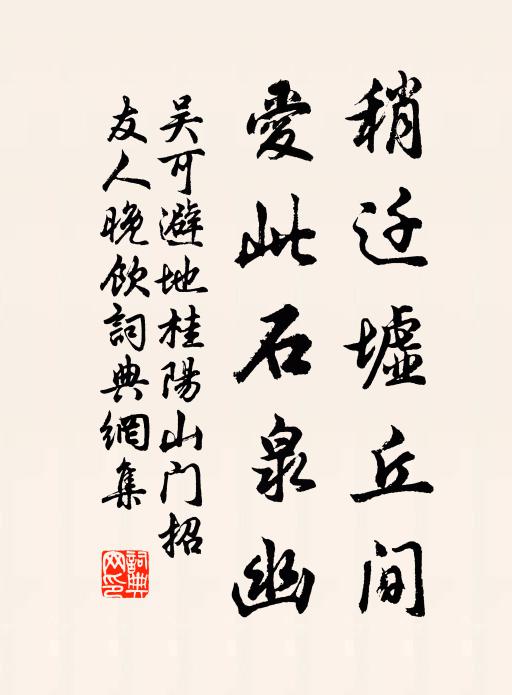 稍迁墟丘间
愛此石泉幽
吴可避地桂陽山门招
友人晚飲詞典網集
詞典
网印